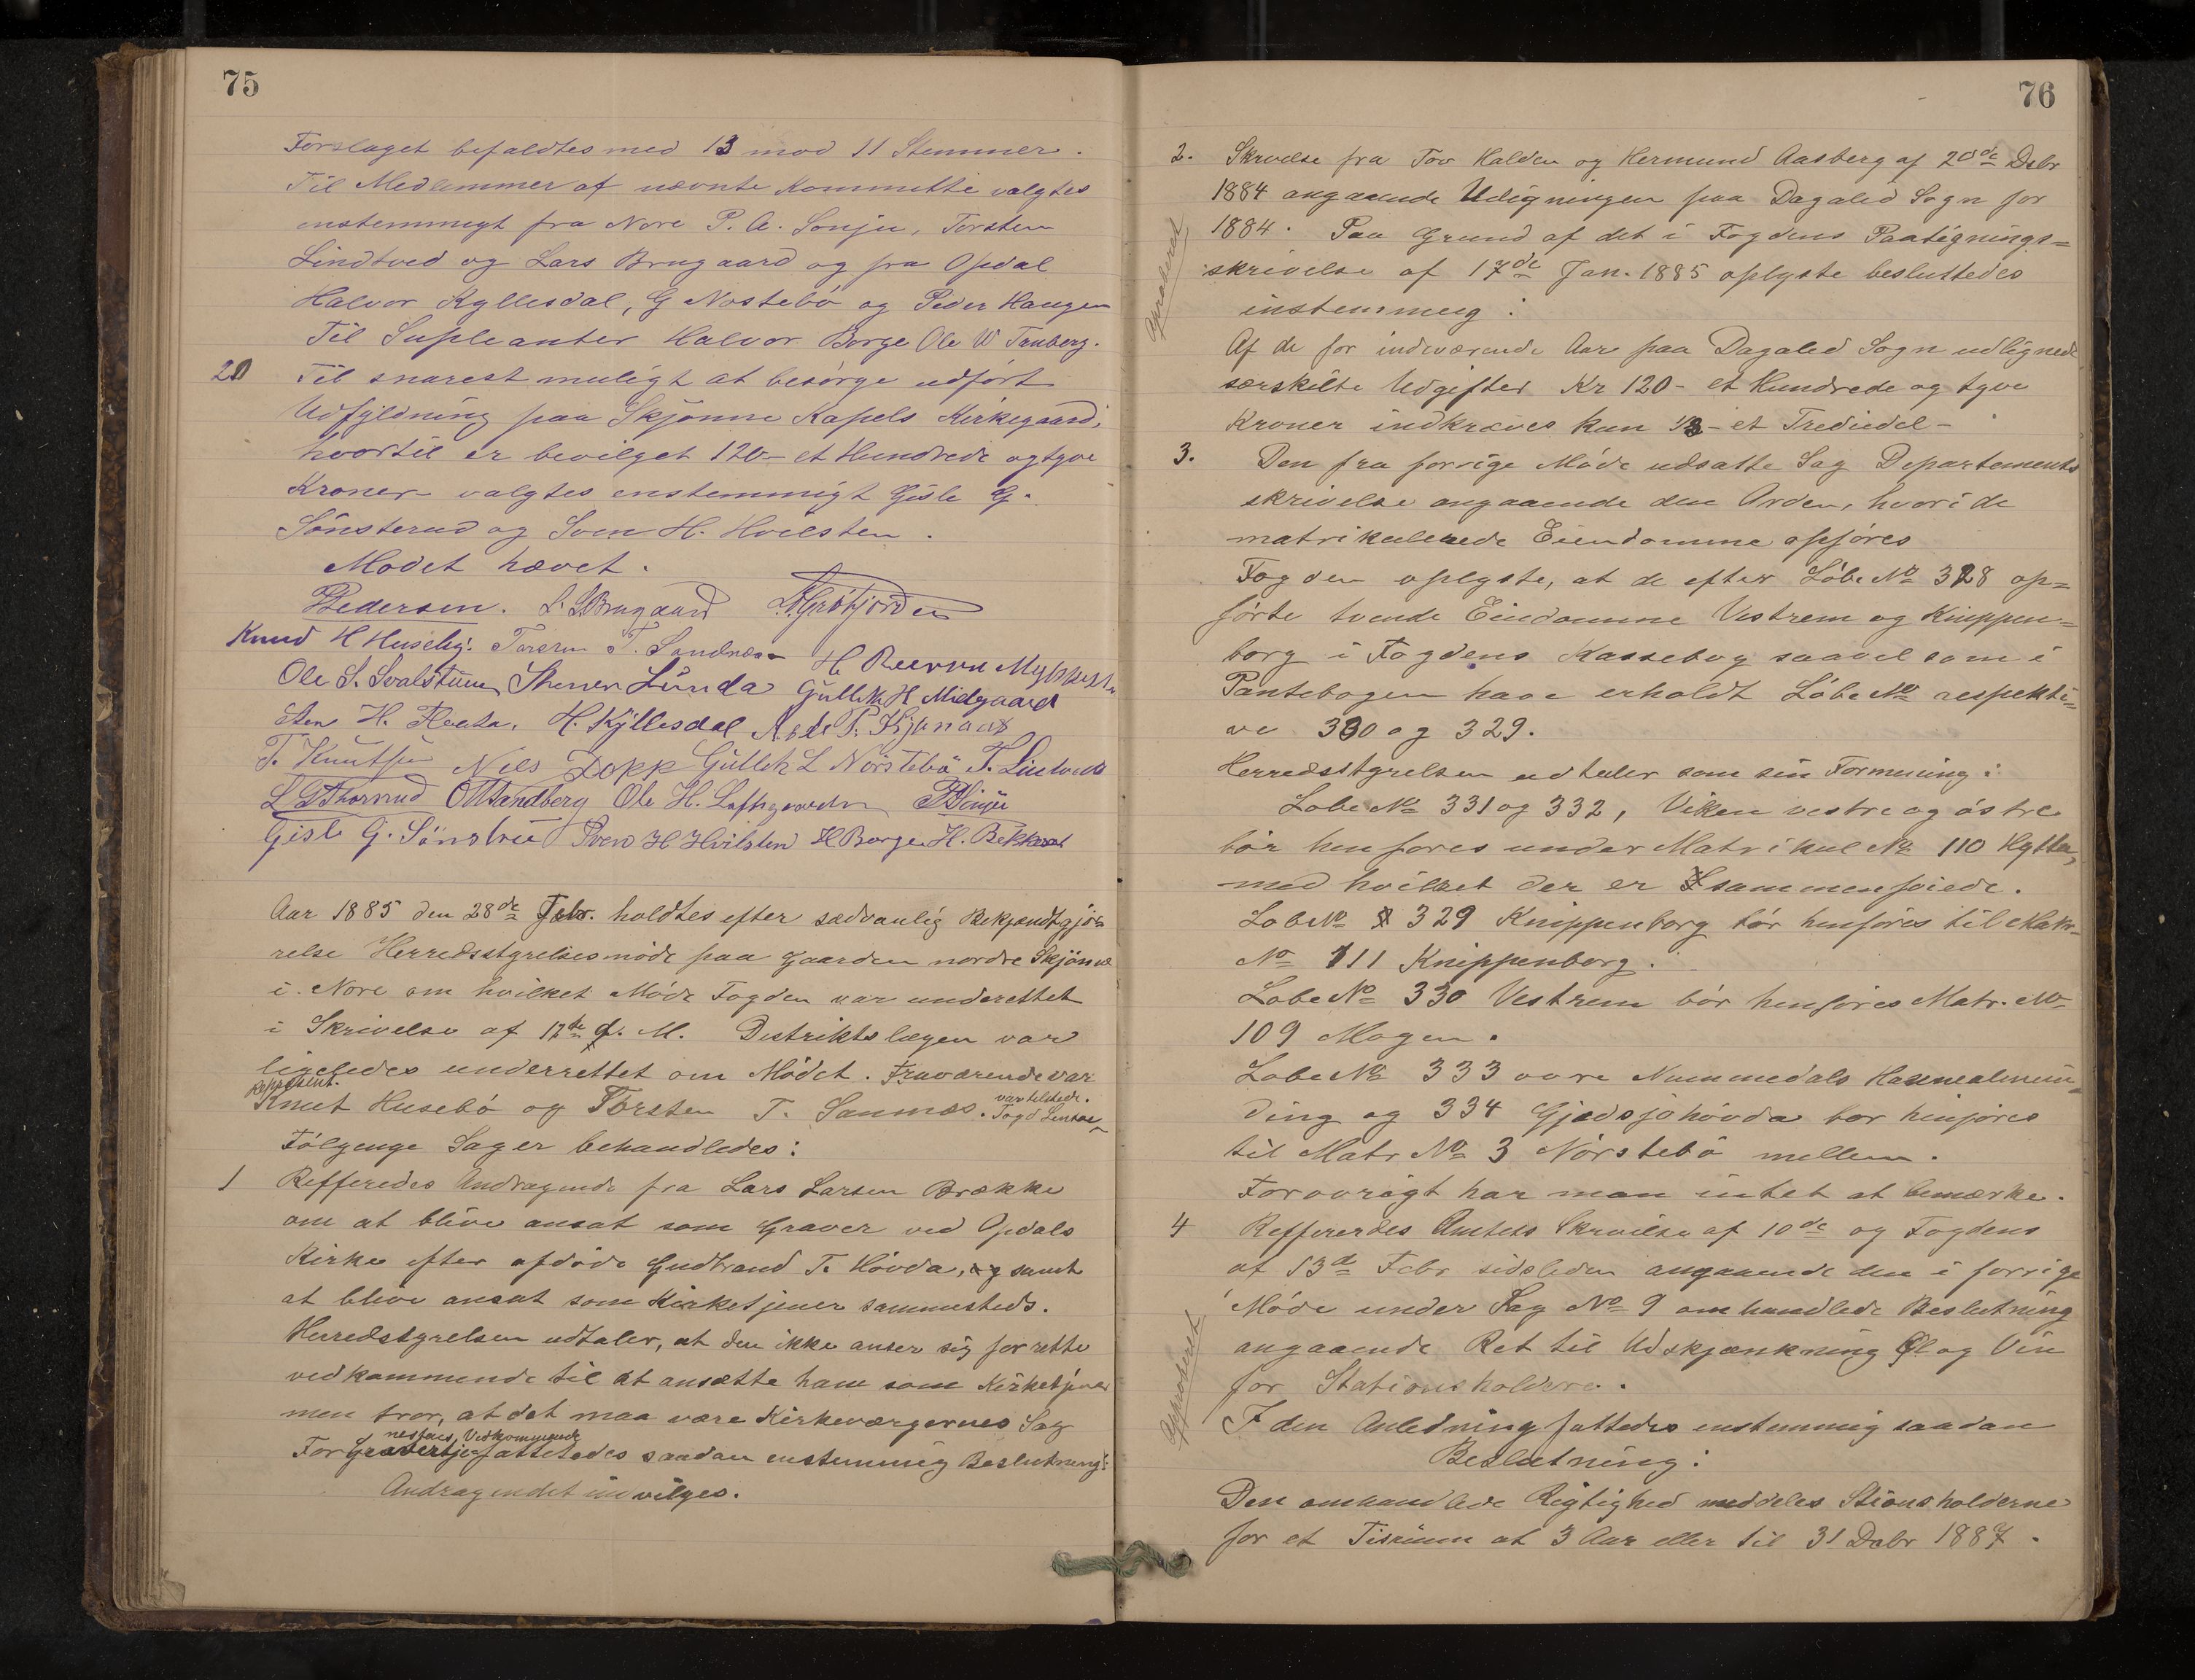 75
Forslaget befaldtes med 13 mod 11 Stemmer.
Til Medlemmer af nævnte Kommitte valgtes
enstemmigt fra Nore P. A. Sonju, Torsten
Lindtved og Lars Brugaard og fra Opdal
Halvor Kyllesdal, G Nostebö og Peder Haugen
Til Supleanter Halvor Borge Ole W Truberg.
20 Til snarest muligt at besörge udfört
Udfyldning paa Skjönne Kapels Kirkegaard,
hvortil er bevilget 120 – et Hundrede og tyve
Kroner – valgtes enstemmigt Gisle G.
Sönsterud og Sven H. Hvilsten.
Mödet hævet.
Pedersen. L. L. Brugaard
Knud H Huseby. T. Sandnæs H
Ole S. Svalstuen Lunda Gullek H Midgaard
Sten H. H. Kyllesdal P.
T. Knutsen Nils Dopp Gullek L Nörstebö T. Lindtved
L G Thorrud O H Sandberg Ole H. Loftsgaarden P A Sönju
Gisle G. Sönstrud Sven H Hvilsten H Borge H. Bekkeset
Aar 1885 den 28de Febr. holdtes efter sædvanlig Bekjendtgjö=
relse Herredsstyrelsesmöde paa Gaarden nordre Skjönne
i Nore om hvilket Möde Fogden var underettet
i Skrivelse af 17de d. M. Distriktslægen var
ligeledes underrettet om Mödet. Fraværende var
Repræsent. Knut Husebö og Torsten T. Sannæs. Fogd var tilstede.
Fölgenge Sager behandledes:
1 Refferedes Andragende fra Lars Larsen Brække
om at blive ansat som Graver ved Opdals
Kirke efter afdöde Gudbrand T. Hövda, og samt
at blive ansat som Kirketjener sammesteds.
Herredstyrelsen udtaler, at den ikke anser sig for rette
vedkommende til at ansætte ham som Kirketjener
men tror, at det maa være Kirkeværgernes Sag
nestens Vedkommende
For Gravertje fattetedes saadan enstemmig Beslutning:
Andragendet invilges.
76
2. Skrivelse fra Tov Halden og Hermund Aasberg af 20de Dsbr
1884 angaaende Udligningen paa Dagalid Sogn for
1884. Paa Grund af det i Fogdens Paategnings=
skrivelse af 17de Jan. 1885 oplyste besluttedes
instemmig:
Af de for indeværende Aar paa Dagalid Sogn udlignede
særskilte Udgifter Kr 120 – et Hundrede og tyve
Kroner indkræves kun 1/3 – et Trediedel –
3. Den fra forrige Möde udsatte Sag Departements
skrivelse angaaende den Orden, hvori de
matrikulerede Eiendomme opföres
Fogden oplyste, at de efter Löbe No 328 op=
förte tvende Eiendomme Vestrem og Knippen=
borg i Fogdens Kassebog saavel som i
Pantebogen have erholdt Löbe No respekti=
ve 330 og 329.
Herredsstyrelsen udtaler som sin Formening:
Löbe No 331 og 332, Viken vestre og östre
bör henföres under Matrikul No 110 Hytten,
med hvilket der er sammenföiede.
Lobe No 329 Knippenborg bör henföres til Matr.
No 111 Knippenborg.
Lobe No 330 Vestrem bör henföres Matr. No
109 Mogen.
Lobe No 333 övre Nummedals
ding og 334 Gjedsjöhövda bor henföres
til Matr No 3 Nörstebö mellem.
Forovrigt har man intet at bemærke.
4 Reffererdes Amtets Skrivelse af 10de og Fogdens
af 13de Febr sidsleden angaaende den i forrige
Möde under Sag No 9 omhandlede Beslutning
angaaende Ret til Udskjænkning Öl og Vin
for Stationsholdere.
I den Anledning fattedes enstemmig saadan
Beslutning:
Den omhandlede Rigtighed meddeles Stionsholderne
for et Tisrium at 3 Aar eller til 31 Dsbr 1887.